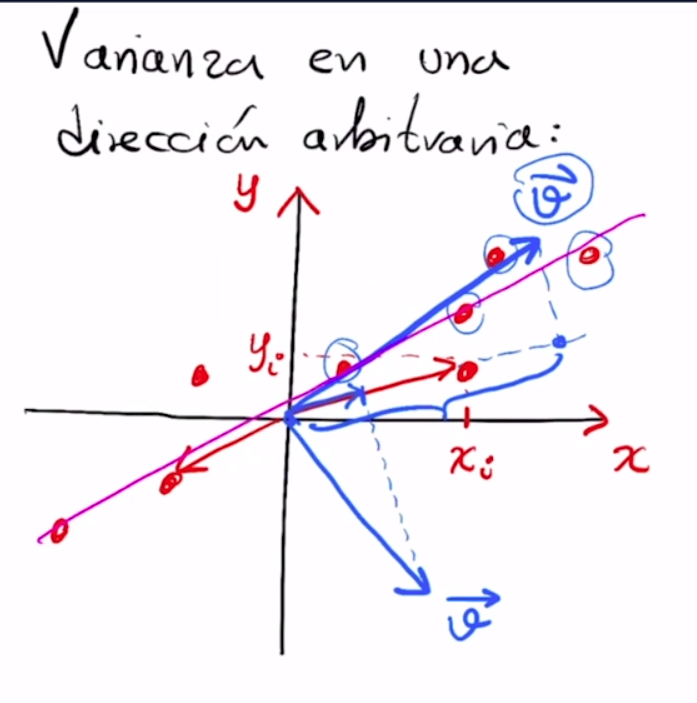 Varianza en una
dirección arbitraria:
y
v⃗
yᵢ
xᵢ
x
v⃗